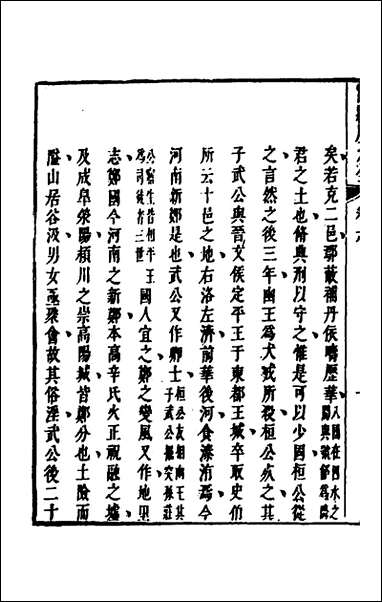 矣若克二邑鄢蔽補丹依疇歷華八國在四水之間與虢鄶為
君之土也脩典刑以守之惟是可以少固桓公從
之言然之後三年幽王為犬戎所殺桓公死之其
子武公與晉文侯定平王于東都王城卒取史伯
所云十邑之地右洛左濟前華後河食溱洧焉今
河南新鄭是也武公又作卿士桓公友相幽王其子武公掘突孫莊
公寤生皆相平王為司徒者三世國人宜之鄭之變風又作地里
志鄭國今河南之新鄭本高辛氏火正祝融之墟
及成皋滎陽潁川之崇高陽城皆鄭分也土陿而
險山居谷汲男女亟聚會故其俗淫武公後二十